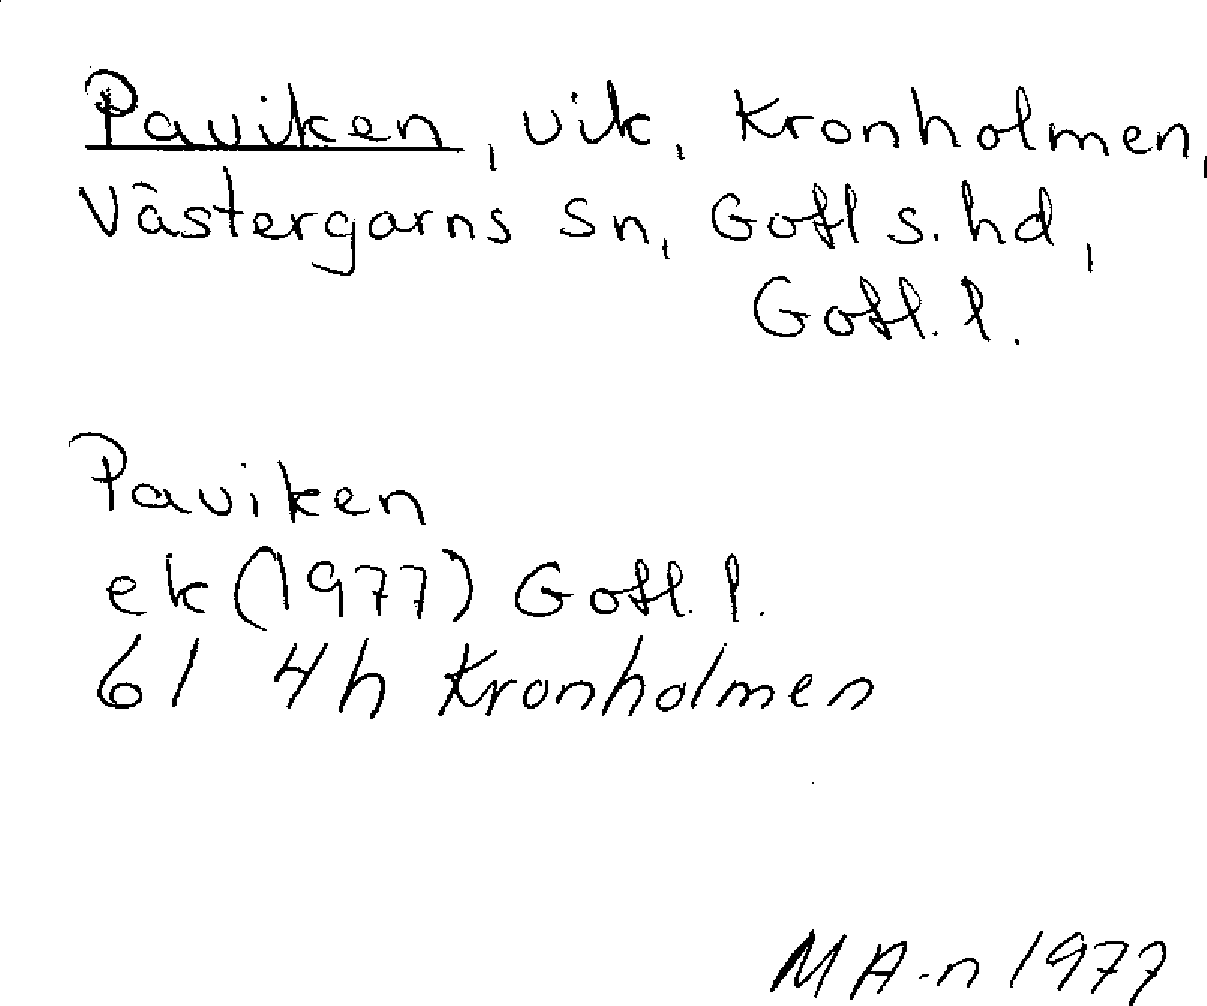 Paviken, vik, Kronholmen,
Västergarns sn, Gotl s. hd,
Gotl. l.
Paviken
ek (1977) Gotl. l.
61 4h Kronholmen
M A-n 1977